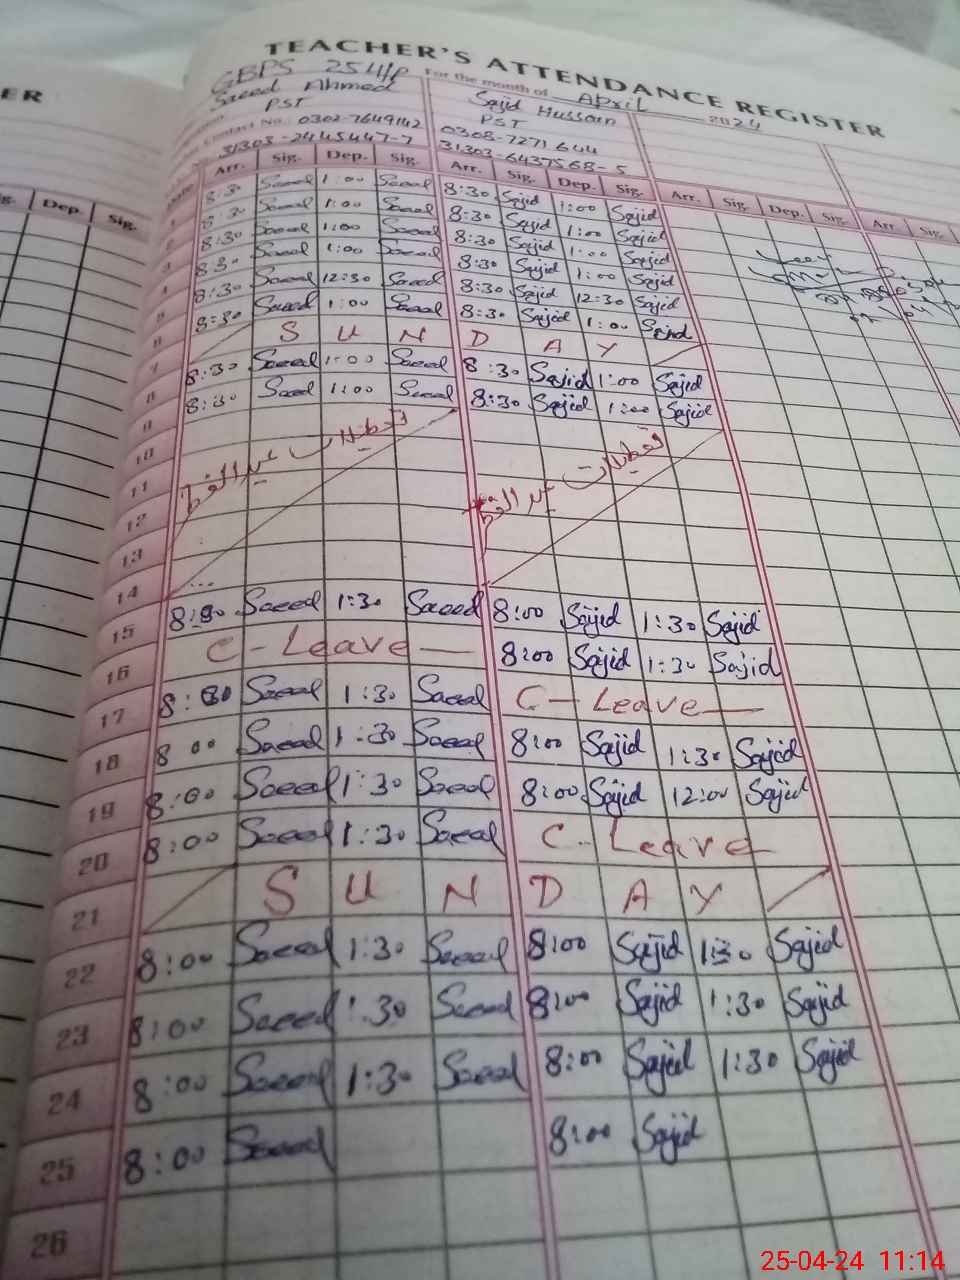 ER
TEACHER'S ATTENDANCE REGISTER
GBPS 254/P For the month of April 2024
Saeed Ahmed Sajid Hussain
PST PST
Contact No: 0302-7649142 0308-7271644
31303-2445447-7 31303-6437568-5
Dep. Sig. Arr. Sig. Dep. Sig. Arr. Sig. Dep. Sig. Arr. Sig. Dep. Sig. Arr. Sig.
1 8:30 Saeed 1:00 Saeed 8:30 Sajid 1:00 Sajid
2 8:30 Saeed 1:00 Saeed 8:30 Sajid 1:00 Sajid
3 8:30 Saeed 1:00 Saeed 8:30 Sajid 1:00 Sajid
4 8:30 Saeed 1:00 Saeed 8:30 Sajid 1:00 Sajid
5 8:30 Saeed 12:30 Saeed 8:30 Sajid 12:30 Sajid
6 8:30 Saeed 1:00 Saeed 8:30 Sajid 1:00 Sajid
7 S U N D A Y
8 8:30 Saeed 1:00 Saeed 8:30 Sajid 1:00 Sajid
9 8:30 Saeed 1:00 Saeed 8:30 Sajid 1:00 Sajid
10
11 تعطیلات عید الفطر تعطیلات عید الفطر
12
13
14
15 8:00 Saeed 1:30 Saeed 8:00 Sajid 1:30 Sajid
16 C-Leave 8:00 Sajid 1:30 Sajid
17 8:00 Saeed 1:30 Saeed C-Leave
18 8 00 Saeed 1:30 Saeed 8:00 Sajid 1:30 Sajid
19 8:00 Saeed 1:30 Saeed 8:00 Sajid 12:00 Sajid
20 8:00 Saeed 1:30 Saeed C-Leave
21 S U N D A Y
22 8:00 Saeed 1:30 Saeed 8:00 Sajid 1:30 Sajid
23 8:00 Saeed 1:30 Saeed 8:00 Sajid 1:30 Sajid
24 8:00 Saeed 1:30 Saeed 8:00 Sajid 1:30 Sajid
25 8:00 Saeed 8:00 Sajid
26
25-04-24 11:14